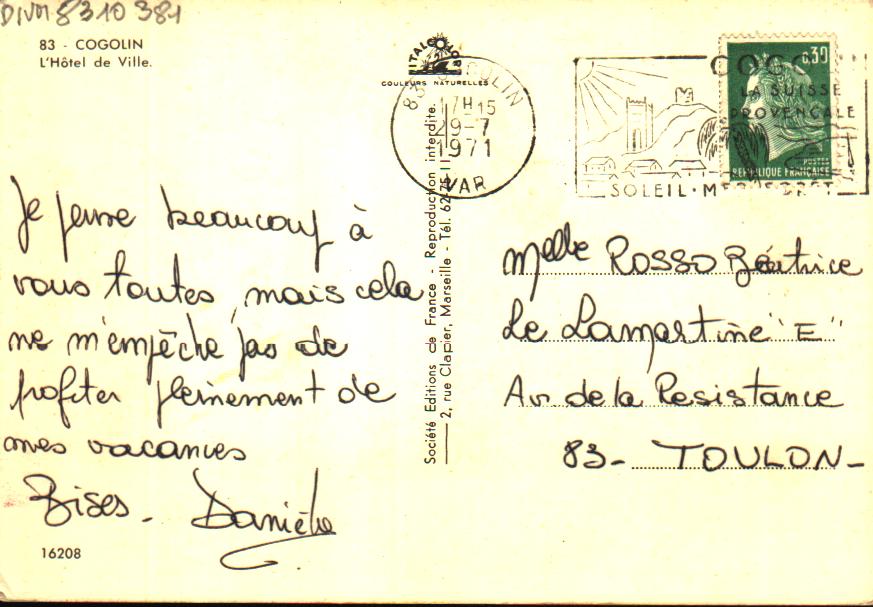 DIVM 8310 381
83 - COGOLIN
L'Hôtel de Ville.
Je pense beaucoup à
vous toutes, mais cela
ne m'empêche pas de
profiter pleinement de
mes vacances
Bises - Danièle
16208
ITALCOLOR
COULEURS NATURELLES
Société Editions de France - Reproduction interdite.
2, rue Clapier, Marseille - Tél. 62-75-11
83 COGOLIN
17H15
29-7
1971
VAR
COGO
LA SUISSE
PROVENÇALE
SOLEIL · MER · FORET
0,30
POSTES
REPUBLIQUE FRANÇAISE
Melle ROSSO Béatrice
Le Lamartine "E"
Av. de la Resistance
83 - TOULON -